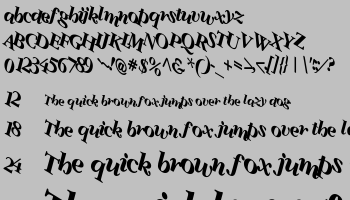 abcdefghijklmnopqrstuvwxyz
ABCDEFGHIJKLMNOPQRSTUVWXYZ
0123456789
12 The quick brown fox jumps over the lazy dog
18 The quick brown fox jumps over the l
24 The quick brown fox jumps